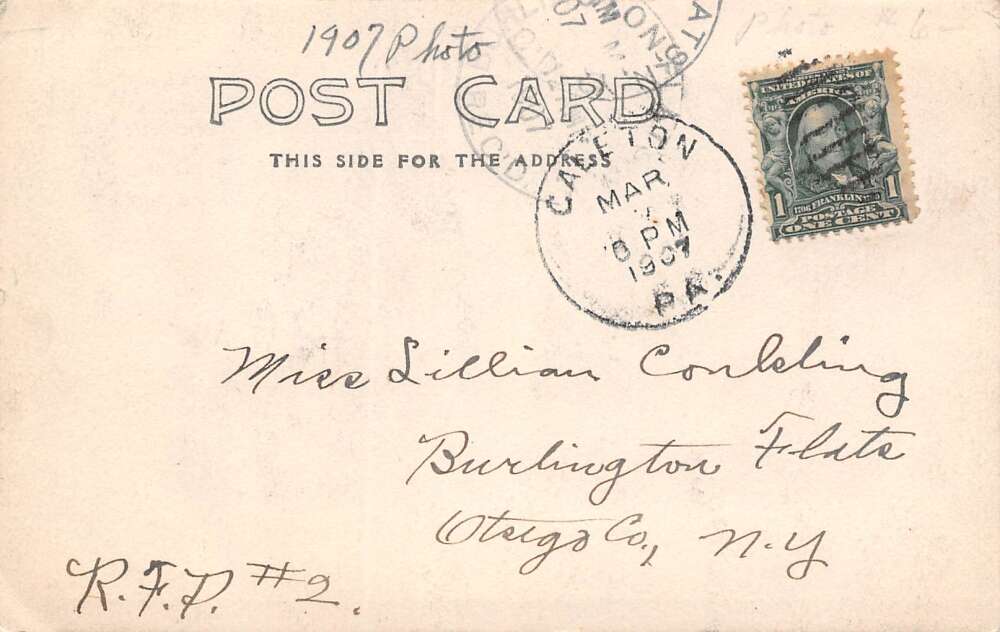 1907 Photo
Photo #6-
POST CARD
THIS SIDE FOR THE ADDRESS
GALETON
MAR
6 PM
1907
PA.
UNITED STATES OF
AMERICA
1 FRANKLIN 1
POSTAGE
ONE CENT
Miss Lillian Conkling
Burlington Flats
Otsego Co., N.Y
R.F.D. #2.